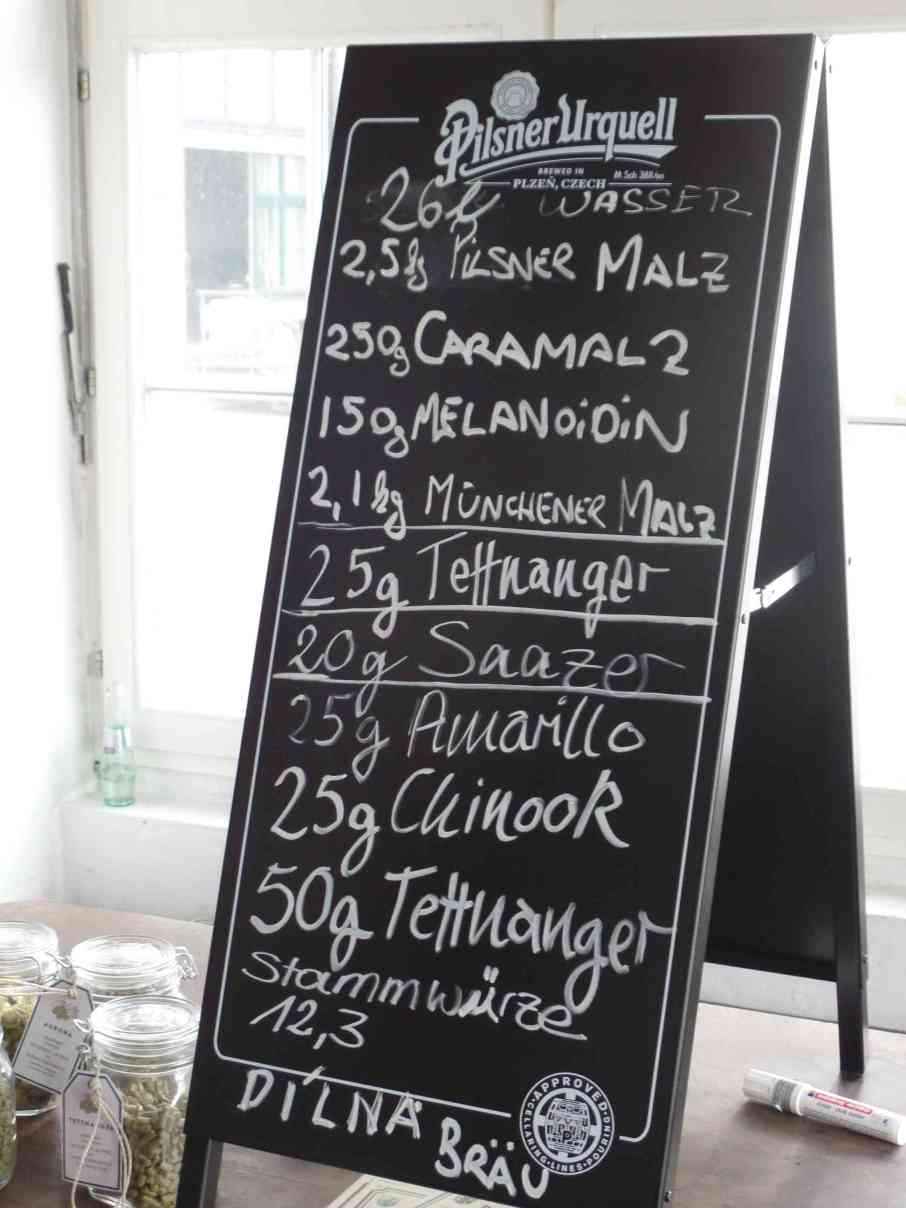 Pilsner Urquell
BREWED IN
PLZEŇ, CZECH
WASSER
2,5 kg PILSNER MALZ
250g CARAMALZ
150g MELANOiDiN
2,1 kg MÜNCHENER MALZ
25g Tettnanger
20g Saazer
25g Amarillo
25g Chinook
50g Tettnanger
Stammwürze
12,3
DÍLNA
BRÄU
APPROVED
CELLARING·LINES·POURING
AURORA
TETTNANGER